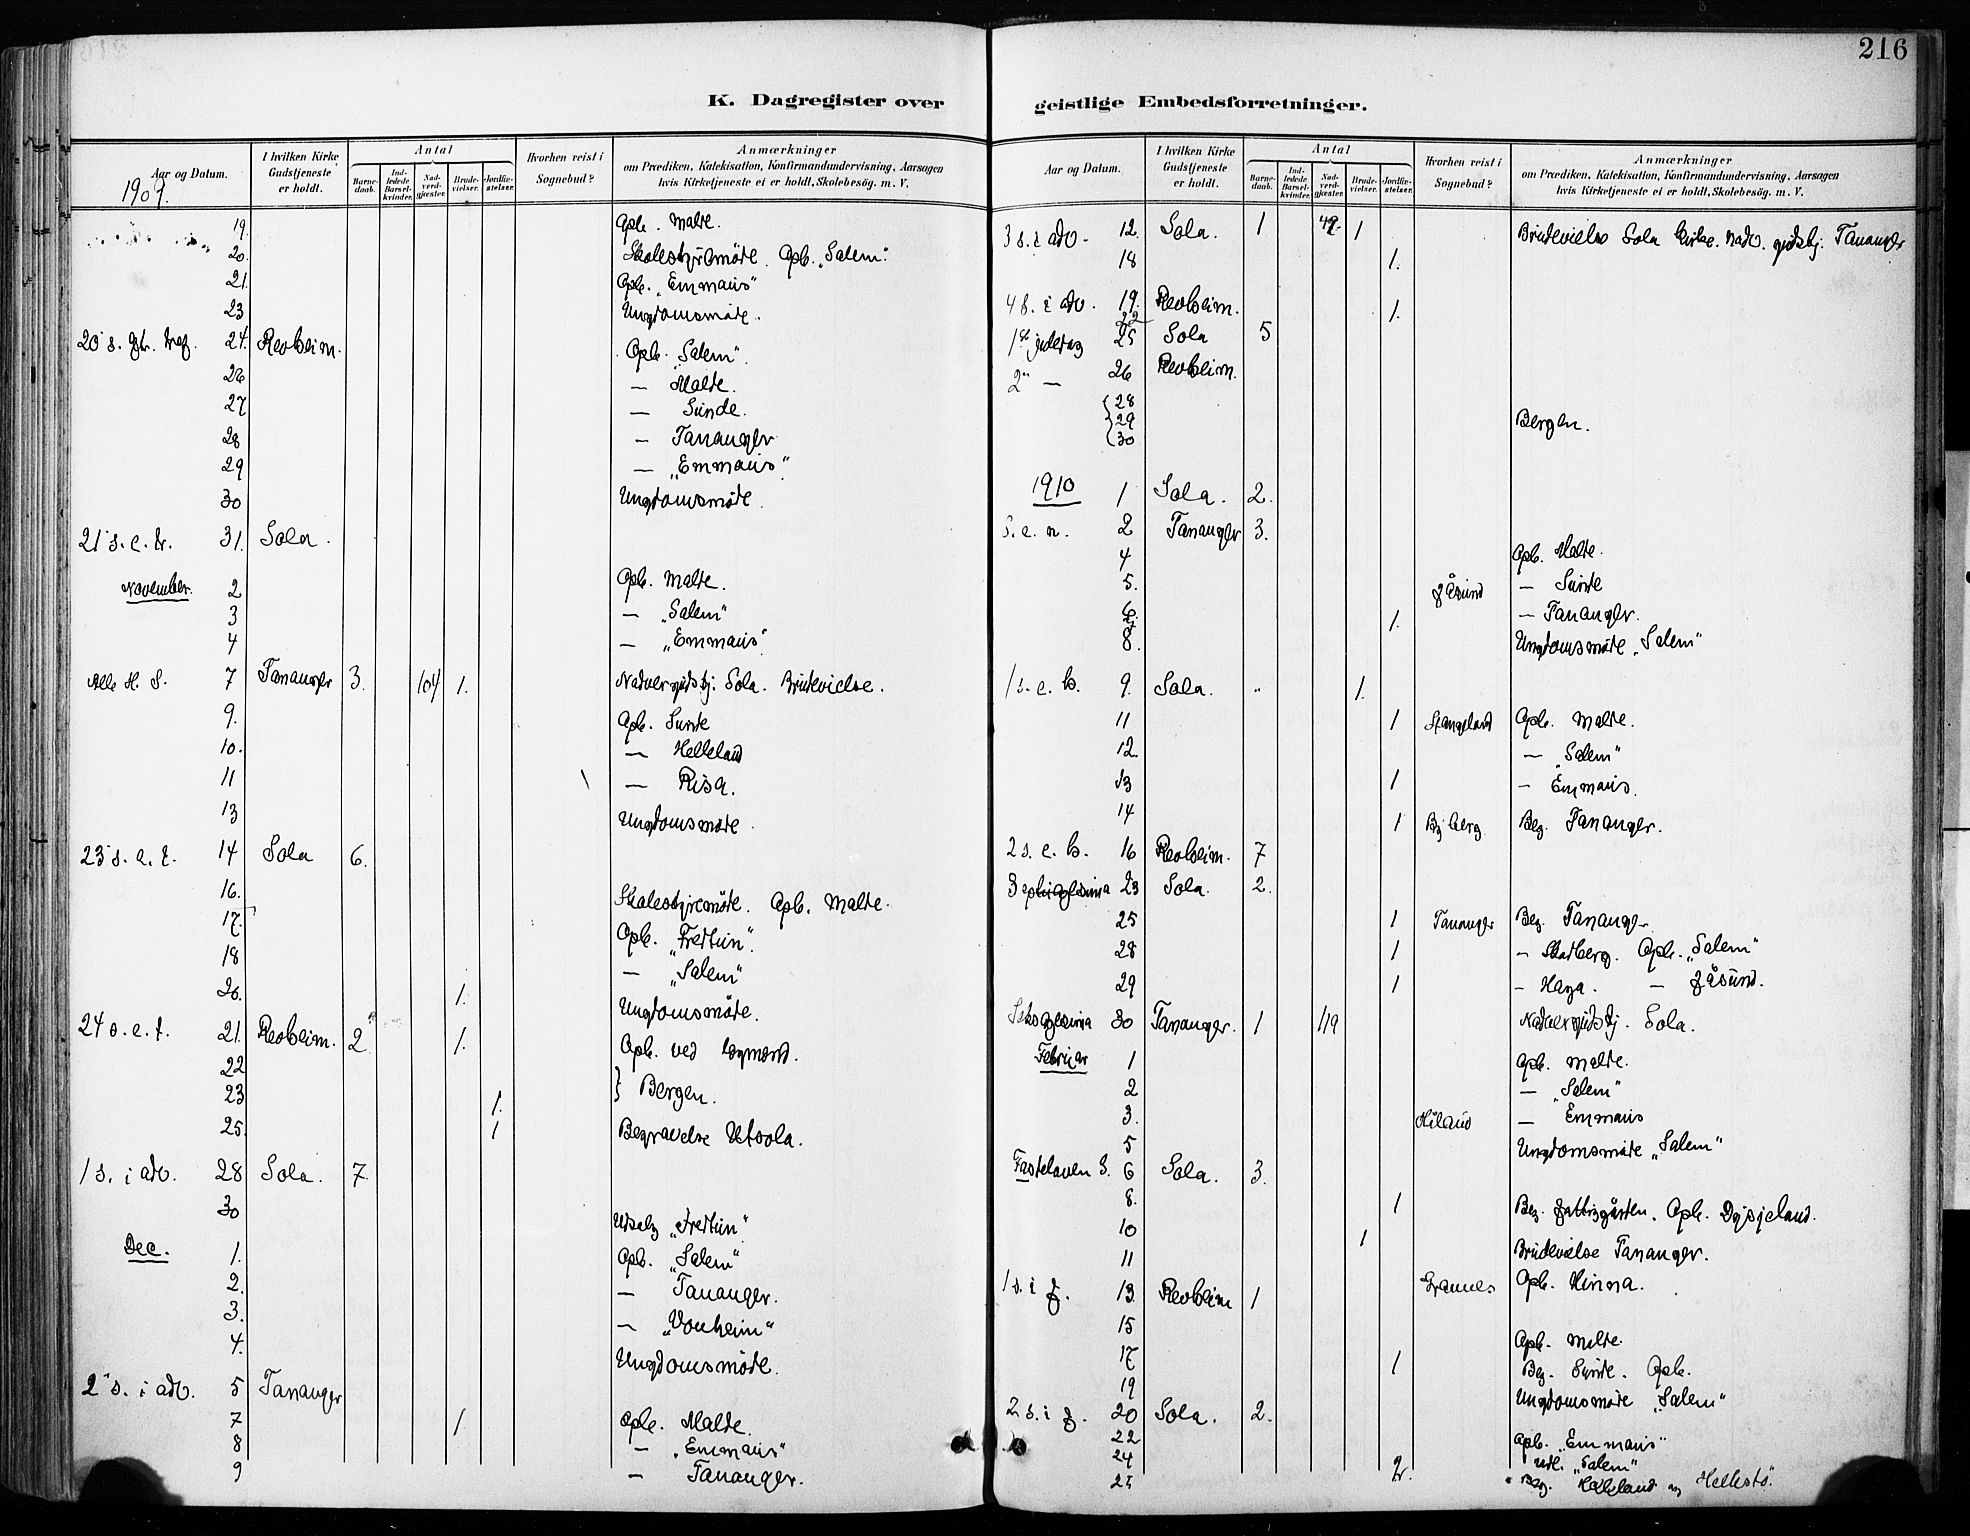 216
K. Dagregister over geistlige Embedsforretninger.
Aar og Datum. I hvilken Kirke Gudstjeneste er holdt. Antal Barnedaab. Indledede Barselkvinder. Nadverdgjester. Brudevielser. Jordfæstelser. Hvorhen reist i Sognebud? Anmærkninger om Prædiken, Katekisation, Konfirmandundervisning, Aarsagen hvis Kirketjeneste ei er holdt, Skolebesøg. m. V.
1909.
19. Opb. Malde.
20. Skolestyremöde. Opb. „Salem".
21. Opb. „Emmaus"
23 Ungdomsmöde.
20 s. 24. Revheim. Opb. „Salem".
26 — Malde.
27 — Sunde.
28 — Tananger
29 — „Emmaus"
30 Ungdomsmöde.
21 s. e. tr. 31. Sola.
November. 2 Opb. Malde.
3 — „Salem"
4 — „Emmaus"
Alle H. S. 7 Tananger 3. 104 1. Sola. Brudevielse.
9. Opb. Sunde
10. — Helleland
11 — Risa.
13 Ungdomsmöde
23 s. e. t. 14 Sola 6.
16. Skolestyremöde. Opb. Malde.
17. Opb. „Fredtun".
18 — „Salem"
20. 1. Ungdomsmöde.
24 s. e. t. 21. Revheim. 2 1. Opb. ved
22
23 1. } Bergen.
25. 1 Begravelse Utsola.
1 s. i adv. 28 Sola. 7
30 „Fredtun"
Dec. 1. Opb. „Salem"
2. — Tananger.
3. — „Vonheim"
4. Ungdomsmöde.
2 s. i adv. 5 Tananger
7 1. Opb. Malde.
8 — „Emmaus"
9 — Tananger.
Aar og Datum. I hvilken Kirke Gudstjeneste er holdt. Antal Barnedaab. Indledede Barselkvinder. Nadverdgjester. Brudevielser. Jordfæstelser. Hvorhen reist i Sognebud? Anmærkninger om Prædiken, Katekisation, Konfirmandundervisning, Aarsagen hvis Kirketjeneste ei er holdt, Skolebesøg. m. V.
3 s. i adv. 12. Sola. 1 1 Brudevielse Sola Kirke. Tananger
18 1.
4 s. i adv. 19. Revheim.
22 1.
1ste juledag 25 Sola 5
2 — 26 Revheim.
28
29 Bergen.
30
1910 1 Sola. 2.
S. e. n. 2 Tananger 3.
4 Opb. Malde.
5. — Sunde
6. — Tananger.
7 1.
8. Ungdomsmöde „Salem"
1 s. e. h. 9. Sola. " 1.
11 1 Stangeland Opb. Malde.
12. — „Salem"
13 1 — Emmaus.
14 1 Byberg Beg. Tananger.
2 s. e. h. 16 Revheim. 7
Septuagesima 23 Sola. 2.
25 1 Tananger Beg. Tananger
28 1 — Opb. „Salem"
29 1 — Haga. —
Seksagesima 30 Tananger. 1 119 Sola.
Februar 1 Opb. Malde.
2 — „Salem"
3. Håland — Emmaus
5 Ungdomsmöde „Salem"
Fastelaven S. 6 Sola. 3.
8. 1 Beg. Fattiggården. Opb. Dysjeland.
10 1 Brudevielse Tananger.
11 Grannes Opb. Hinna.
1 s. i f. 13 Revheim 1
15 Opb. Malde.
17 1 Beg. Sunde. Opb.
19 Ungdomsmöde „Salem"
2 s. i f. 20 Sola. 2.
22 Opb. „Emmaus"
24 „Salem"
25 2. Beg. Helleland og Hellestö.